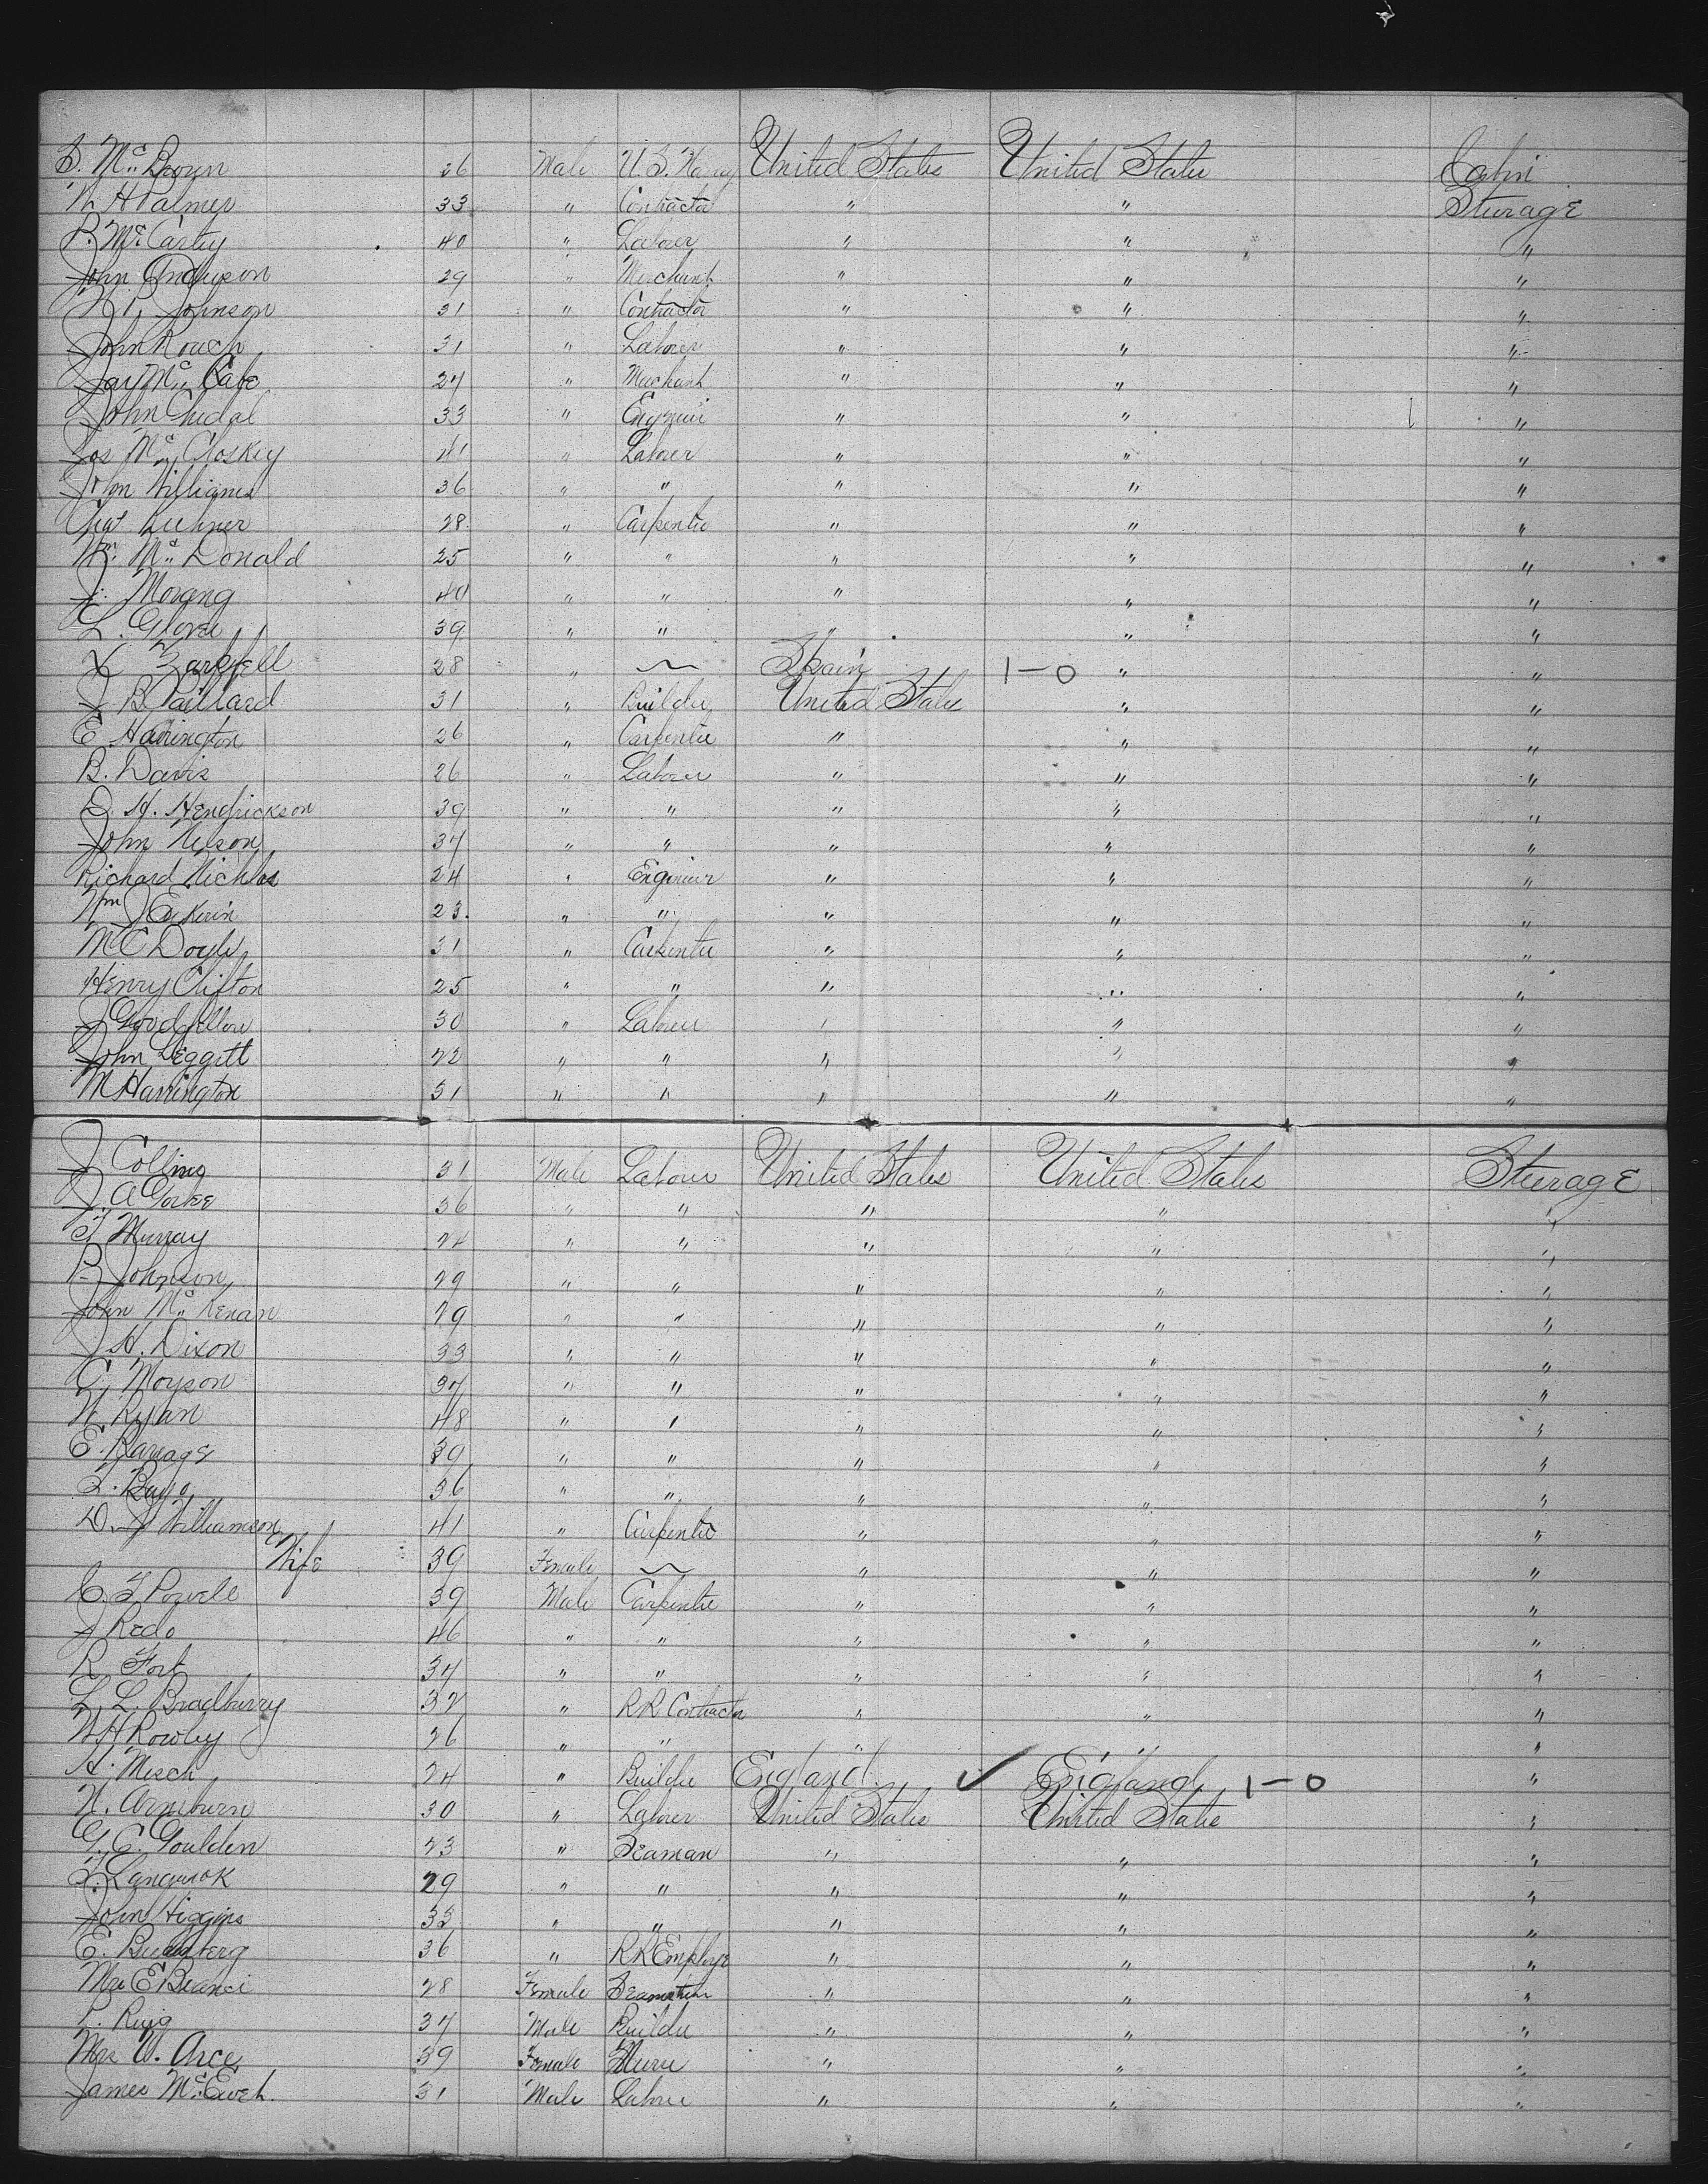 S. Mc Brown 26 Male U.S. Navy United States United States Cabin
W H Palmer 33 " Contractor " " Steerage
P. Mc Carty 40 " Laborer " " "
John Anderson 29 " Merchant " " "
Johnson 31 " Contractor " " "
John Rouch 31 " Laborer " " "
Jay Mc Cabe 27 " Merchant " " "
John 33 " Engineer " " "
Jos Mc Closkey 41 " Laborer " " "
John Williams 36 " " " " "
Chas 28 " Carpenter " " "
Wm Mc Donald 25 " " " " "
J. Morang 40 " " " " "
L. Glover 39 " " " " "
28 " ~ Spain 1-0 " "
J B Paillard 31 " Builder United States " "
E Harrington 26 " Carpenter " " "
B. Davis 26 " Laborer " " "
D. H. Hendrickson 39 " " " " "
John Nelson 37 " " " " "
Richard Nichlos 24 " Engineer " " "
Wm J 23. " " " " "
M C Doyle 31 " Carpenter " " "
Henry Clifton 25 " " " " "
J Goodfellow 30 " Laborer " " "
John Leggett 22 " " " " "
M Harrington 31 " " " " "
J Collins 31 Male Laborer United States United States Steerage
J. A 36 " " " " "
T Murray 24 " " " " "
P. Johnson 29 " " " " "
John Mc Kenan 29 " " " " "
J H. Dixon 33 " " " " "
C. Moyson 37 " " " " "
W. Ryan 48 " " " " "
E. 39 " " " " "
36 " " " " "
D. J Williamson 41 " Carpenter " " "
Wife 39 Female ~ " " "
C. F Powell 39 Male Carpenter " " "
J Redo 46 " " " " "
R Fort 34 " " " " "
L. L. Bradburry 32 " RR Contractor " " "
W H Rowley 26 " " " " "
A. Mesch 24 " Builder England ✓ England 1-0 "
W. Arneburn 30 " Laborer United States United States "
G. C. Goulden 23 " Seaman " " "
29 " " " " "
John Higgins 33 " " " " "
E. 36 " RR Employe " " "
Mrs E Bianci 28 Female " " "
P. Ruig 37 Male Builder " " "
Mrs W. Arce 39 Female Nurse " " "
James Mc Ewen 31 Male Laborer " " "